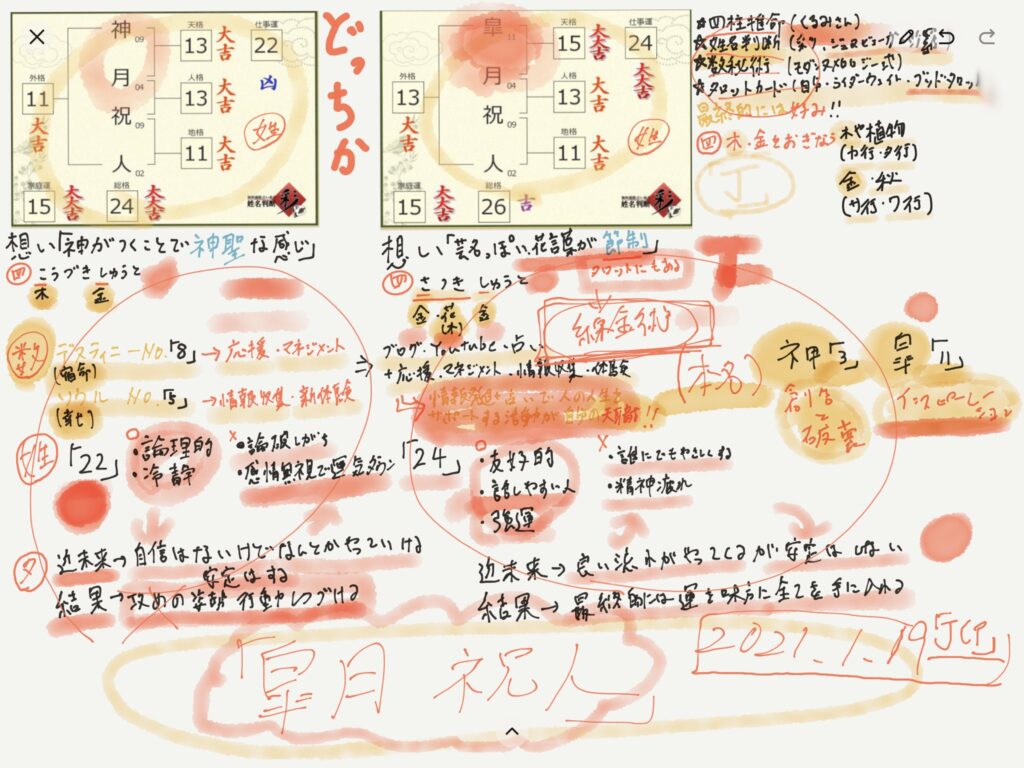 神 09
月 04
祝 09
人 02
天格 13 大吉
人格 13 大吉
地格 11 大吉
外格 11 大吉
仕事運 22 凶
家庭運 15 大大吉
総格 24 大大吉
姓
姓名判断 彩
どっちか
皐 11
月 04
祝 09
人 02
15 大大吉
13 大吉
11 大吉
外格 13 大吉
仕事運 24 大大吉
家庭運 15 大大吉
総格 26 吉
姓
姓名判断 彩
★四柱推命(くるみさん)
★姓名判断
★数秘術
★タロットカード(日中・ライダーウェイト・ブッド・タロット
最終的には好み!!
四 木・金をおぎなう
木や植物
(カ行・タ行)
金・秋
(サ行・ワ行)
想い「神がつくことで神聖な感じ」
四 こうづき しゅうと
木 金
想い「芸名っぽい花言葉が節制」
タロットにもある
四 さつき しゅうと
金・花 金
(木)
数 デスティニーNo.「8」→応援・マネジメント
(宿命)
ソウル No.「5」→情報収集・新体験
(幸せ)
ブログ・Youtube・占い
+応援・マネジメント・情報収集・体験
情報発信と占いで人の人生を
サポートする活動が自分の天職!!
錬金術
(本名)
神「3」
創造と破壊
皐「11」
インスピレーション
姓 「22」
○ ・論理的
・冷静
× ・論破しがち
・感情無視で運気ダウン
「24」
○ ・友好的
・話しやすい人
・強運
× ・誰にでもやさしくする
・精神疲れ
タ 近未来→自信はないけどなんとかやっていける
安定はする
結果→攻めの姿勢 行動しつづける
近未来→良い流れがやってくるが安定はしない
結果→最終的には運を味方に全てを手に入れる
「皐月 祝人」
2021.1.19